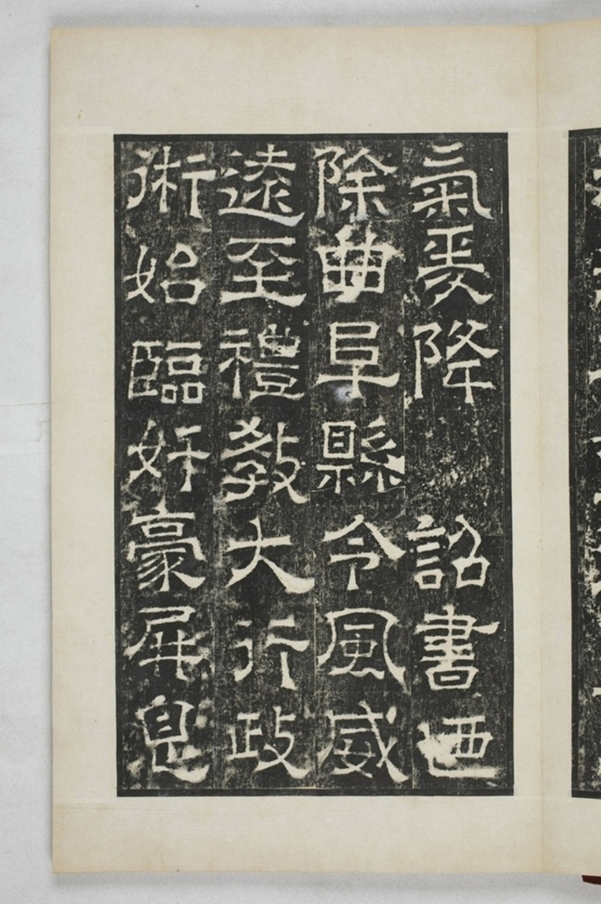 氣爰降 詔書迺
除曲阜縣令風威
遠至禮教大行政
術始臨奸豪屏息